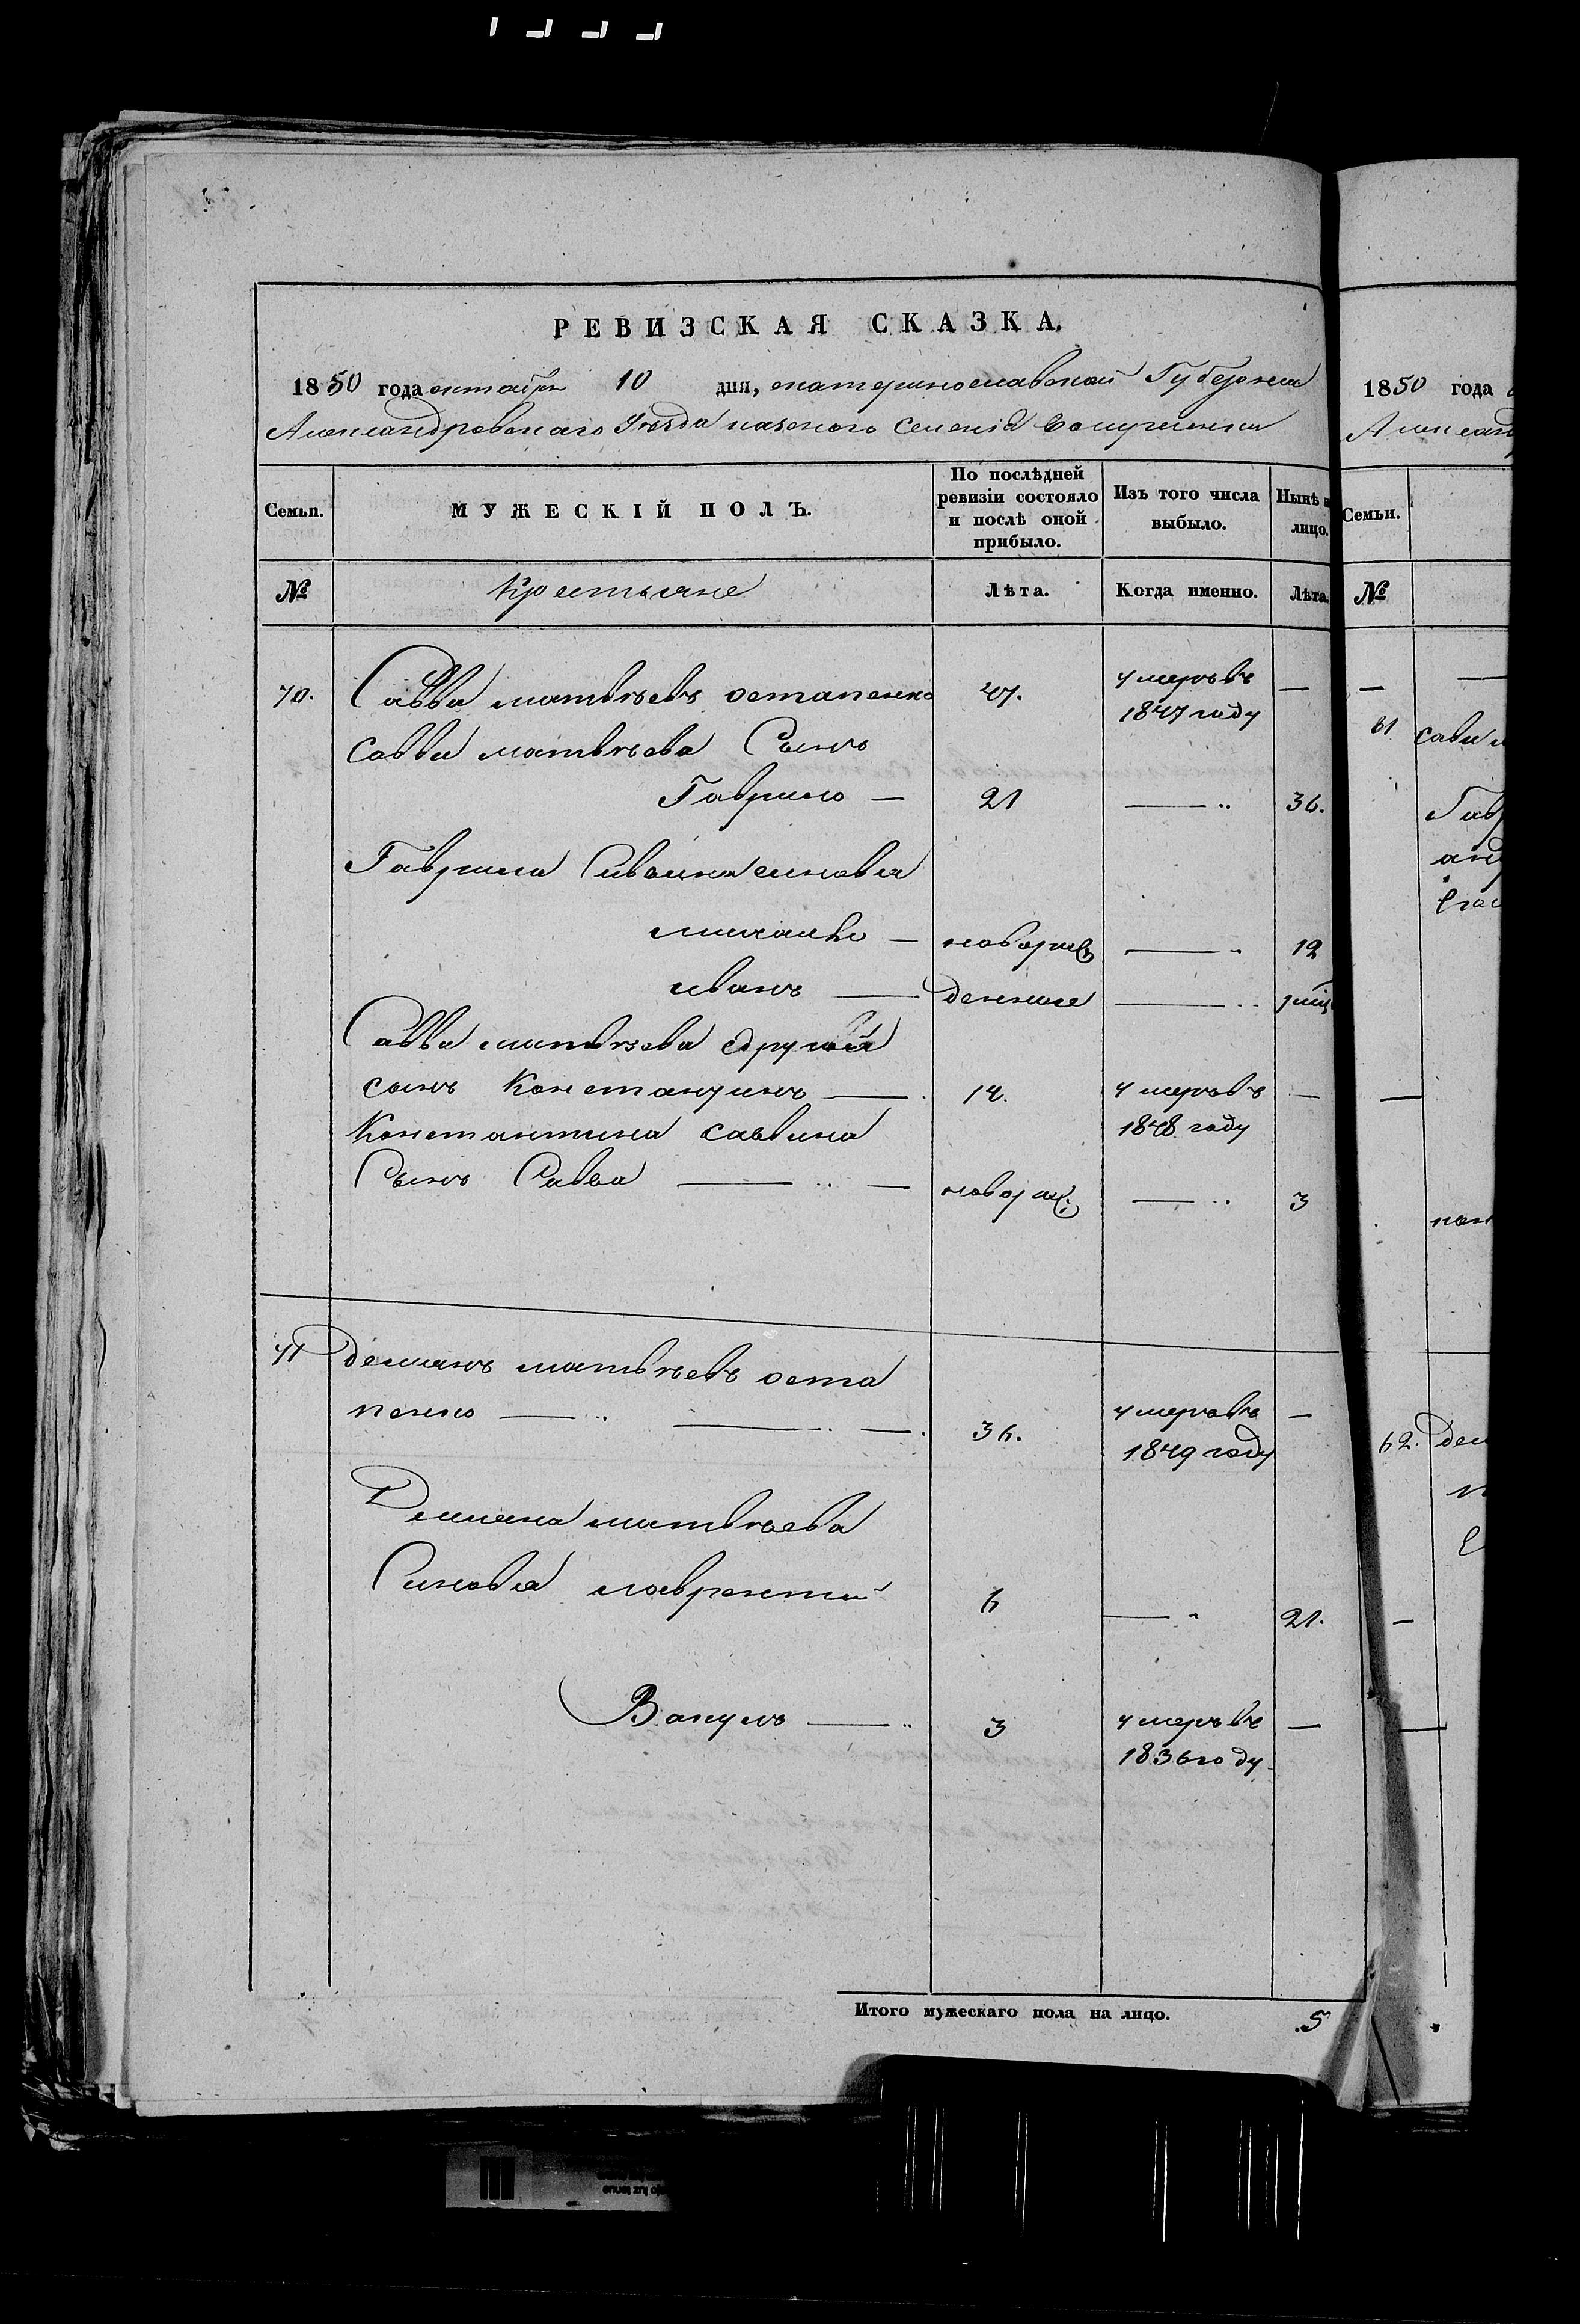 РЕВИЗСКАЯ СКАЗКА.
1850 года октября 10 дня, екатеринославской Губернии
Александровскаго Уезда казеного Селения
Семьи.
МУЖЕСКІЙ ПОЛЪ.
По послѣдней ревизіи состояло и послѣ оной прибыло.
Изъ того числа выбыло.
Нынѣ
лицо.
№
Крестьяне
Лѣта.
Когда именно.
Лѣта.
70. Савва матвѣевъ остапенко 47. умеръ въ 1847 году —
Савви матвѣева Сынъ
Гаврило — 21 — 36.
Гаврила Саввина синовья
михайло — новорожд — 12
иванъ — денные —
Савви матвѣева другой
сынъ Константинъ — 14. умеръ въ 1848 году —
Константина саввина
Сынъ Савва — новорож: — 3
71 демянъ матвѣевъ оста
пенко — 36. умеръ въ 1849 году —
Демяна матвѣева
Синовья лаврентий 6 — 21.
Вакулъ — 3 умеръ въ 1836 году —
Итого мужескаго пола на лицо. 5
1850 года
Семьи.
№
61
62.